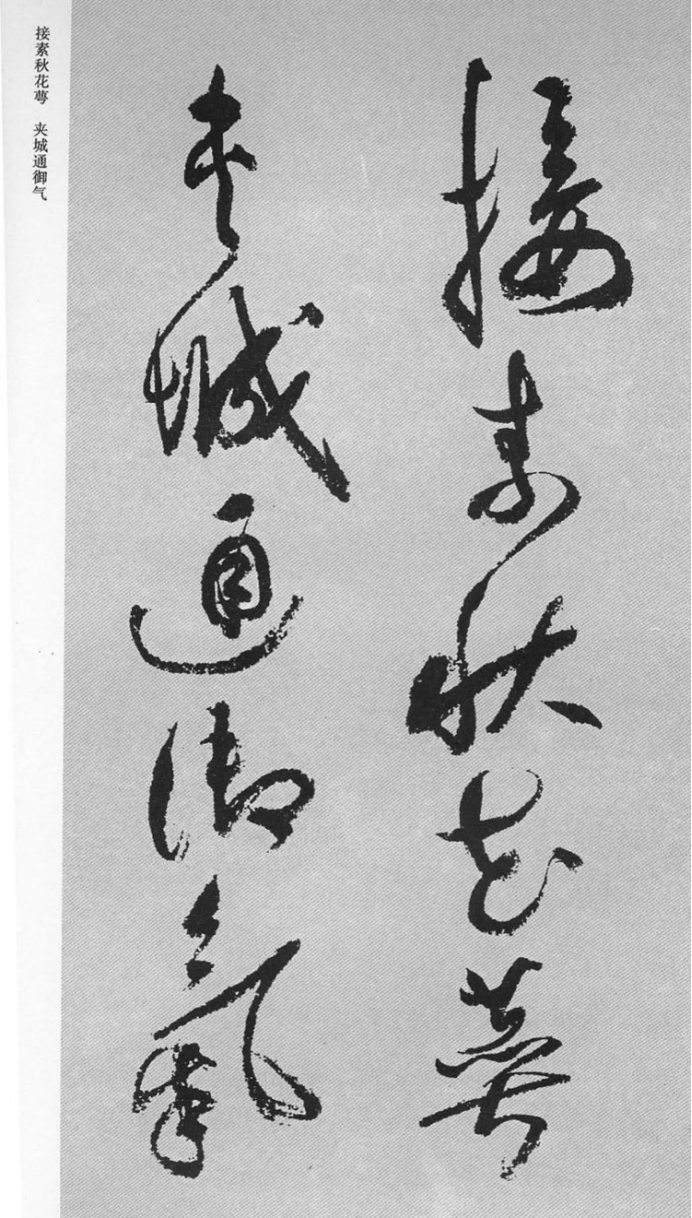 接素秋花萼
夹城通御氣
接素秋花萼 夹城通御气